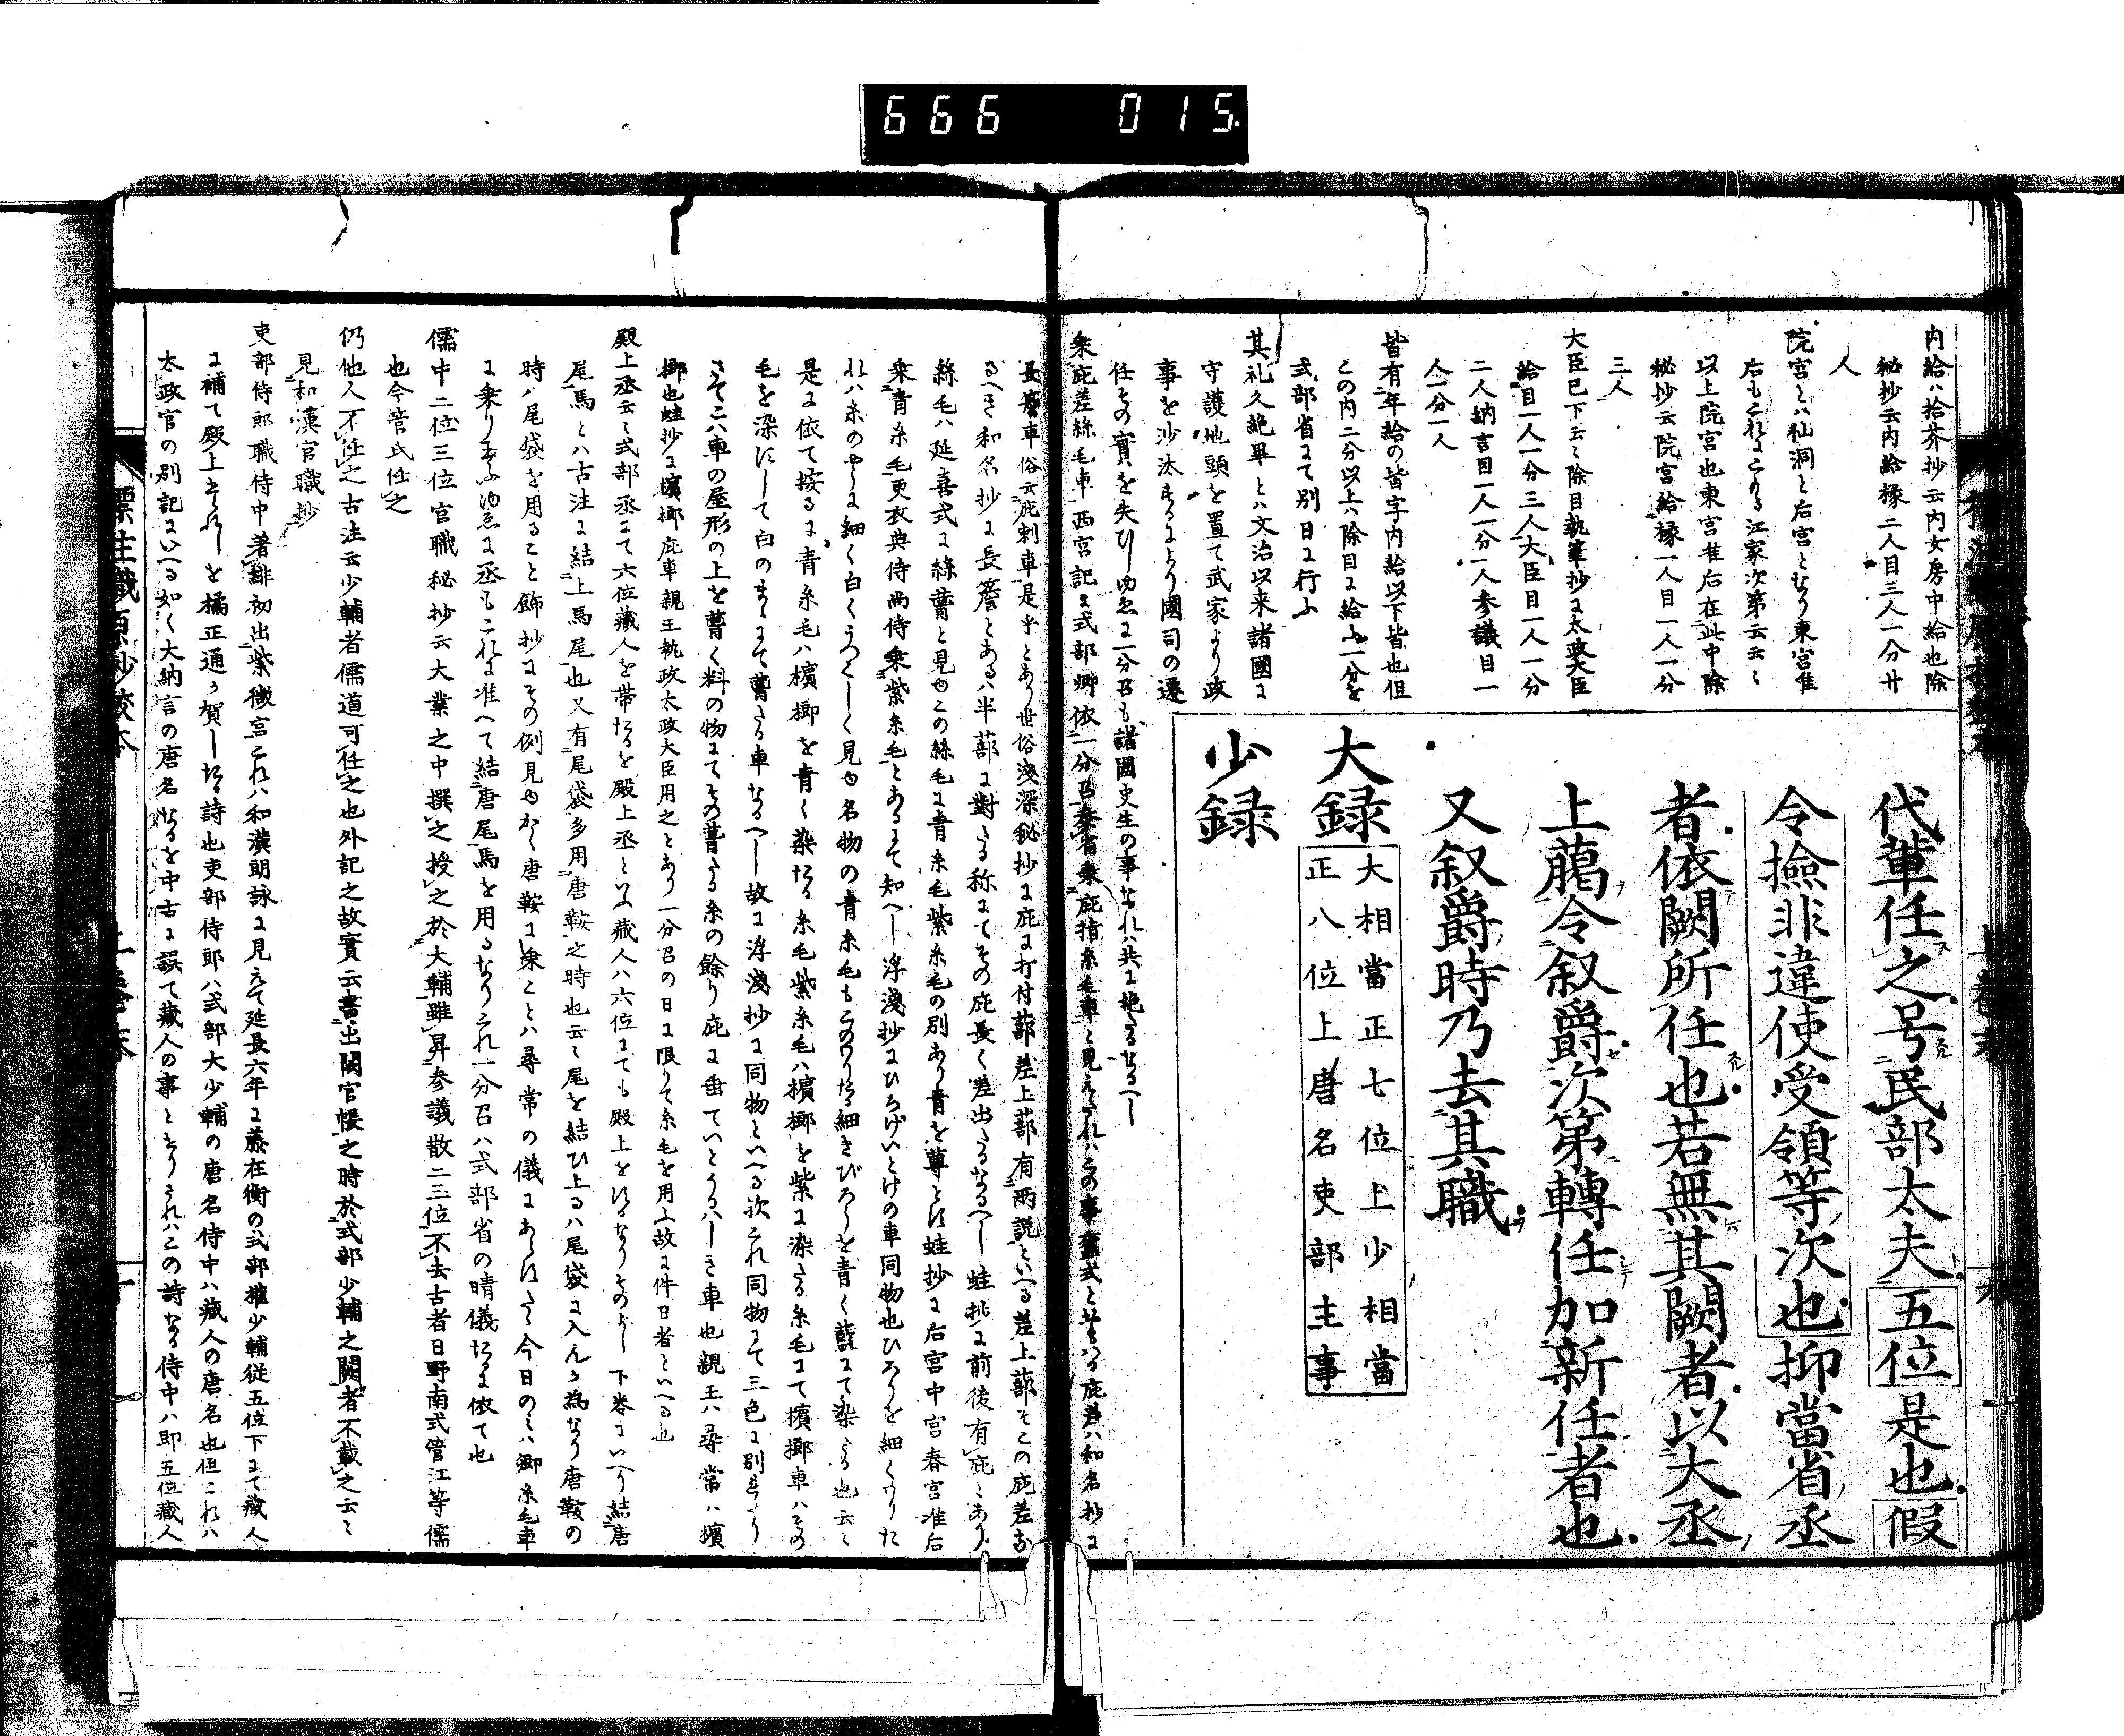 666 015.
内給ハ拾芥抄云内女房中給也除
秘抄云内給椽二人目三人一分廿
人
院宮とハ仙洞と后宮となり東宮准
后もこれにこもる江家次第云云々
以上院宮也東宮准后在此中除
秘抄云院宮給椽一人目一人一分
三人
大臣已下云々除目執筆抄に太政大臣
給目一人一分三人大臣目一人一分
二人納言目一人一分一人参議目一
人一分一人
皆有年給の皆字内給以下皆也但
この内二分以上ハ除目に給ふ一分を
式部省にて別日に行ふ
其礼久絶畢とハ文治以来諸國に
守護地頭を置て武家より政
事を沙汰するにより國司の遷
任その實を失ひしゆゑに一分召も諸國史生の事なれハ共に絶たるなるへし
代輩任之号民部太夫五位是也假
令撿非違使受領等次也抑當省丞
者依闕所任也若無其闕者以大丞
上﨟令叙爵次第轉任加新任者也
又叙爵時乃去其職
大録
大相當正七位上少相當
正八位上唐名吏部主事
少録
乗庇差絲毛車西宮記に式部卿依一分召参省乗庇指糸毛車と見えたれハこの事舊式とせらる庇差ハ和名抄に
長簷車俗云庇刺車是乎とあり世俗淺深秘抄に庇に打付蔀差上蔀有兩説といへる差上蔀そこの庇差な
るへき和名抄に長簷とあるハ半蔀に對する称にてその庇長く差出たるなるへし蛙抄に前後有庇とあり
絲毛ハ延喜式に絲葺と見ゆこの絲毛に青糸毛紫糸毛の別あり青を尊とす蛙抄に后宮中宮春宮准后
乗青糸毛更衣典侍尚侍乗紫糸毛とあるにて知へし浮淺抄にひろげいとけの車同物也ひろりを細くゝりた
れハ糸のやうに細く白くうつくしく見ゆ名物の青糸毛もこのくりたる細きびろうを青く藍にて染たる也云々
是に依て按るに青糸毛ハ檳榔を青く染たる糸毛紫糸毛ハ檳榔を紫に染たる糸毛にて檳榔車ハその
毛を染すして白のまゝにて葺たる車なるへし故に浮淺抄に同物といへる次これ同物にて三色に別れたり
さてこハ車の屋形の上を葺く料の物にてその葺たる糸の餘り庇に垂ていとうるハしき車也親王ハ尋常ハ檳
榔也蛙抄に檳榔庇車親王執政太政大臣用之とあり一分召の日に限りて糸毛を用ふ故に件日者といへる也
殿上丞云々式部丞にて六位藏人を帯たるを殿上丞といふ藏人ハ六位にても殿上をゆるすなりそのよし下巻にいへり結唐
尾馬とハ古注に結上馬尾也又有尾袋多用唐鞍之時也云々尾を結ひ上るハ尾袋に入んか為なり唐鞍の
時ハ尾袋を用ること飾抄にその例見ゆかく唐鞍に乗ことハ尋常の儀にあらす今日のミハ卿糸毛車
に乗り玉ふゆゑに丞もこれに准へて結唐尾馬を用るなりこれ一分召ハ式部省の晴儀たるに依て也
儒中二位三位官職秘抄云大業之中撰之授之於大輔雖昇参議散二三位不去古者日野南式管江等儒
也今管氏任之
仍他人不任之古注云少輔者儒道可任之也外記之故實云書出闕官帳之時於式部少輔之闕者不載之云々
見和漢官職抄
吏部侍郎職侍中著緋初出紫微宮これハ和漢朗詠に見えて延長六年に藤在衡の式部權少輔従五位下にて藏人
に補て殿上せられしを橘正通か賀したる詩也吏部侍郎ハ式部大少輔の唐名侍中ハ藏人の唐名也但これハ
太政官の別記にいへる如く大納言の唐名なるを中古に誤て藏人の事とせりされハこの詩なる侍中ハ即五位藏人
標注職原抄校本
上卷末
十